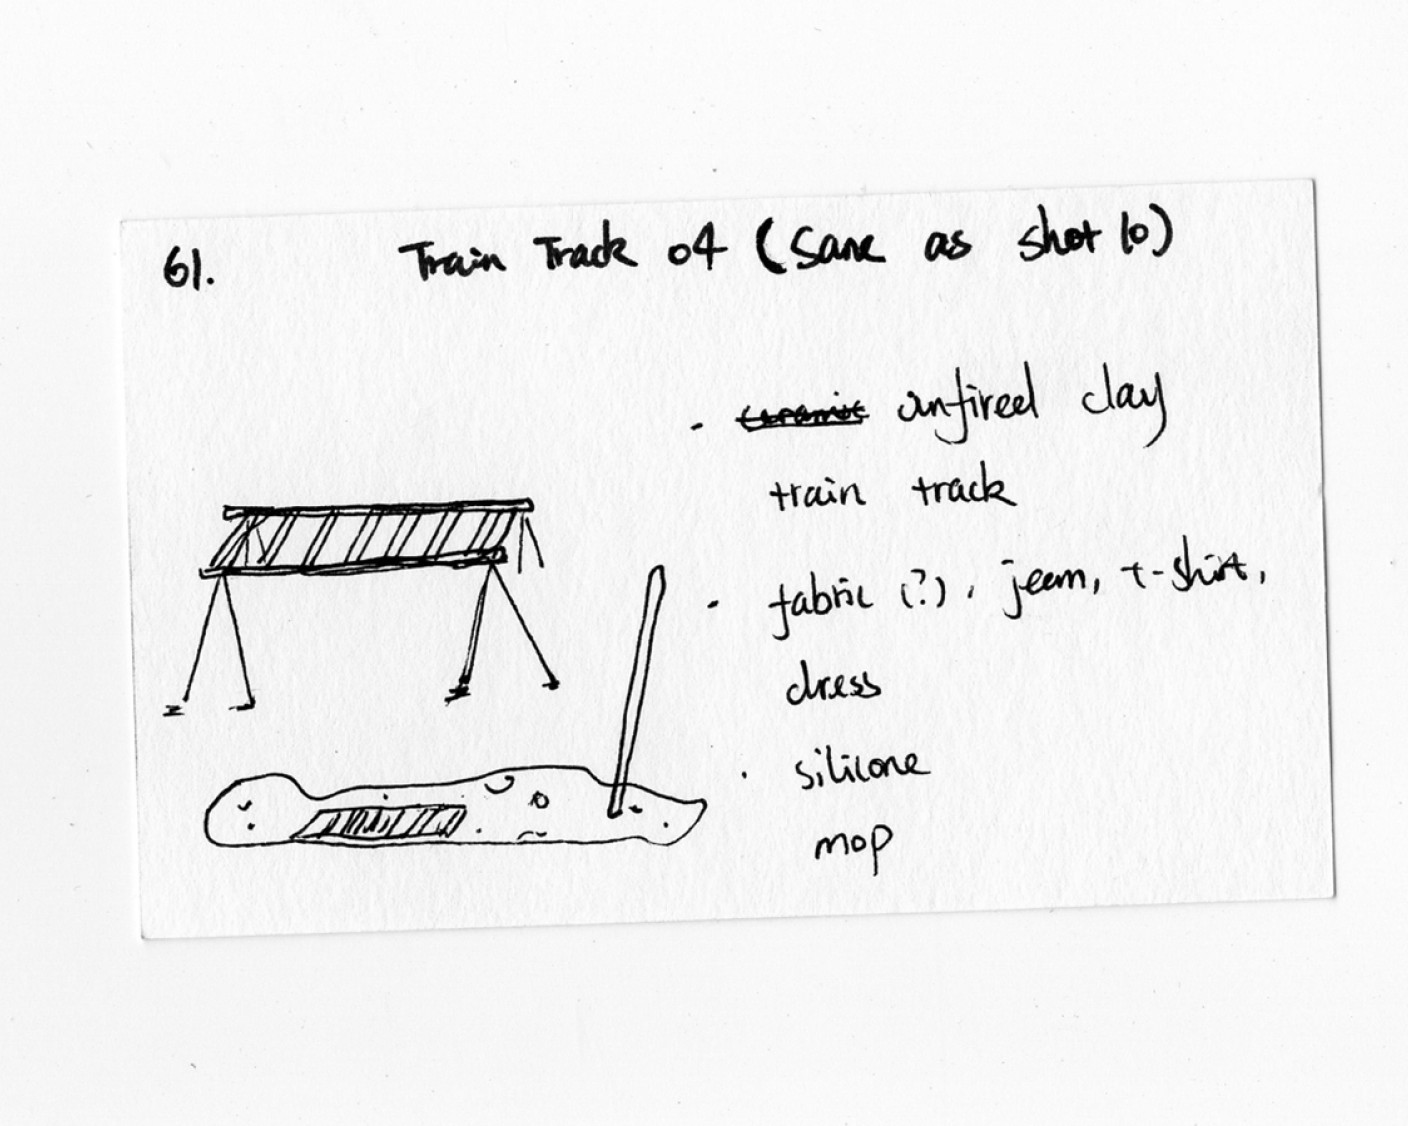 61. Train Track 04 (Same as shot 10)
· ceramic unfired clay
train track
· fabric (?), jean, t-shirt,
dress
· silicone
mop